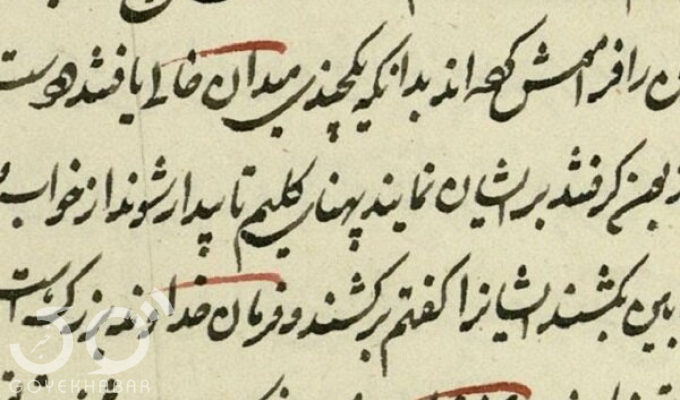 را فرامش کرده اند بدانکه یکچندی میدان خالی یافتند و دست
گرفتند بر ایشان نمایند پهنای گلیم تا بیدار شوند از خواب
بکشند ایشانرا گفتم برکشند و فرمان خداوند بزرگ است
GOYEKHABAR